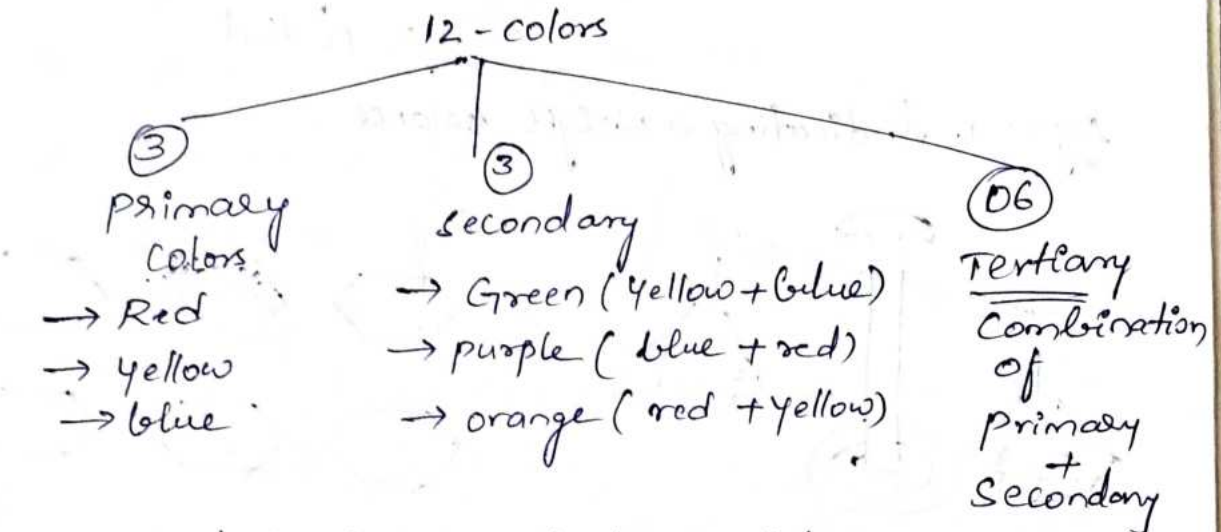 12 - colors
3
primary
Colors
→ Red
→ yellow
→ blue
3
secondary
→ Green (yellow + blue)
→ purple ( blue + red)
→ orange ( red + yellow)
06
Tertiary
Combination
of
primary
+
Secondary